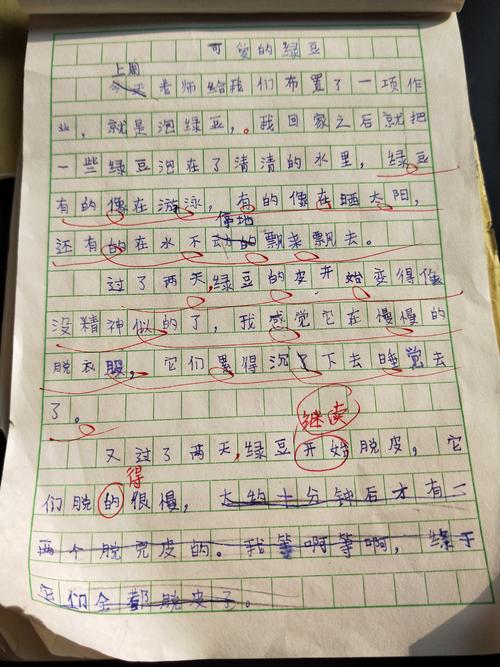 可爱的绿豆
上周
今天老师给我们布置了一项作
业，就是泡绿豆。我回家之后就把
一些绿豆泡在了清清的水里，绿豆
有的像在游泳，有的像在晒太阳，
停地
还有的在水不动的飘来飘去。
过了两天，绿豆的皮开始变得像
没精神似的了，我感觉它在慢慢的
脱衣服，它们累得沉了下去睡觉去
了。
继续
又过了两天，绿豆开始脱皮，它
得
们脱的很慢，大约十分钟后才有一
两个脱完皮的。我等啊等啊，终于
它们全都脱皮了。